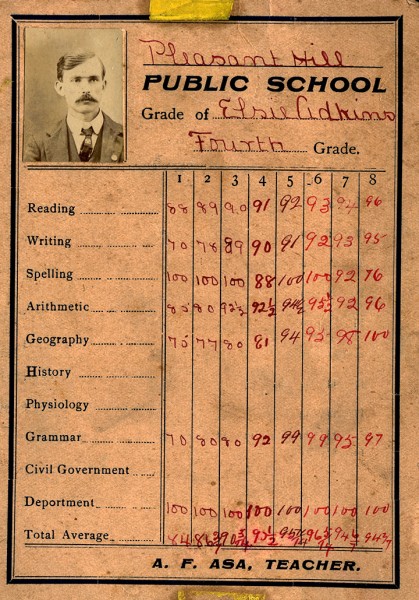 Pleasant Hill
PUBLIC SCHOOL
Grade of Elsie Adkins
Fourth Grade.
1 2 3 4 5 6 7 8
Reading 88 89 90 91 92 93 94 96
Writing 70 78 89 90 91 92 93 95
Spelling 100 100 100 88 100 100 92 76
Arithmetic 85 80 92½ 92½ 94½ 95½ 92 96
Geography 75 77 80 81 94 95 98 100
History
Physiology
Grammar 70 80 90 92 99 99 95 97
Civil Government
Deportment 100 100 100 100 100 100 100 100
Total Average 84
A. F. ASA, TEACHER.